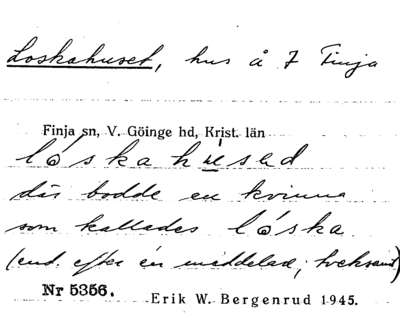 Loskahuset, hus å 7 Finja
Finja sn, V. Göinge hd, Krist. län
där bodde en kvinna
som kallades lóska
(end. efter én meddelare; tveksamt)
Nr 5356. Erik W. Bergenrud 1945.